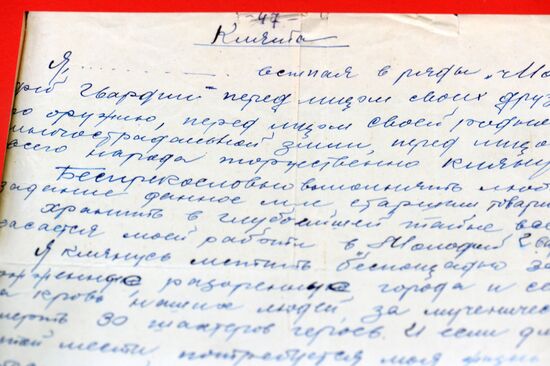 -47-
Клятва
Я, .......... вступая в ряды "Мо
дой Гвардии" перед лицом своих друз
по оружию, перед лицом своей родно
многострадальной земли, перед лицо
всего народа торжественно клянус
Беспрекословно выполнять люб
задание данное мне старшим товари
хранить в глубочайшей тайне все
касается моей работы в "Молодой Гв
Я клянусь мстить беспощадно за
женные разоренные города и се
а кровь наших людей, за мученичес
мерть 30 шахтеров героев. И если дл
этой мести потребуется моя жизнь